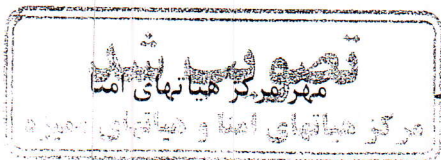 تصویب شد
مهر مرکز هیاتهای امنا
مرکز هیاتهای امنا و هیاتهای ممیزه